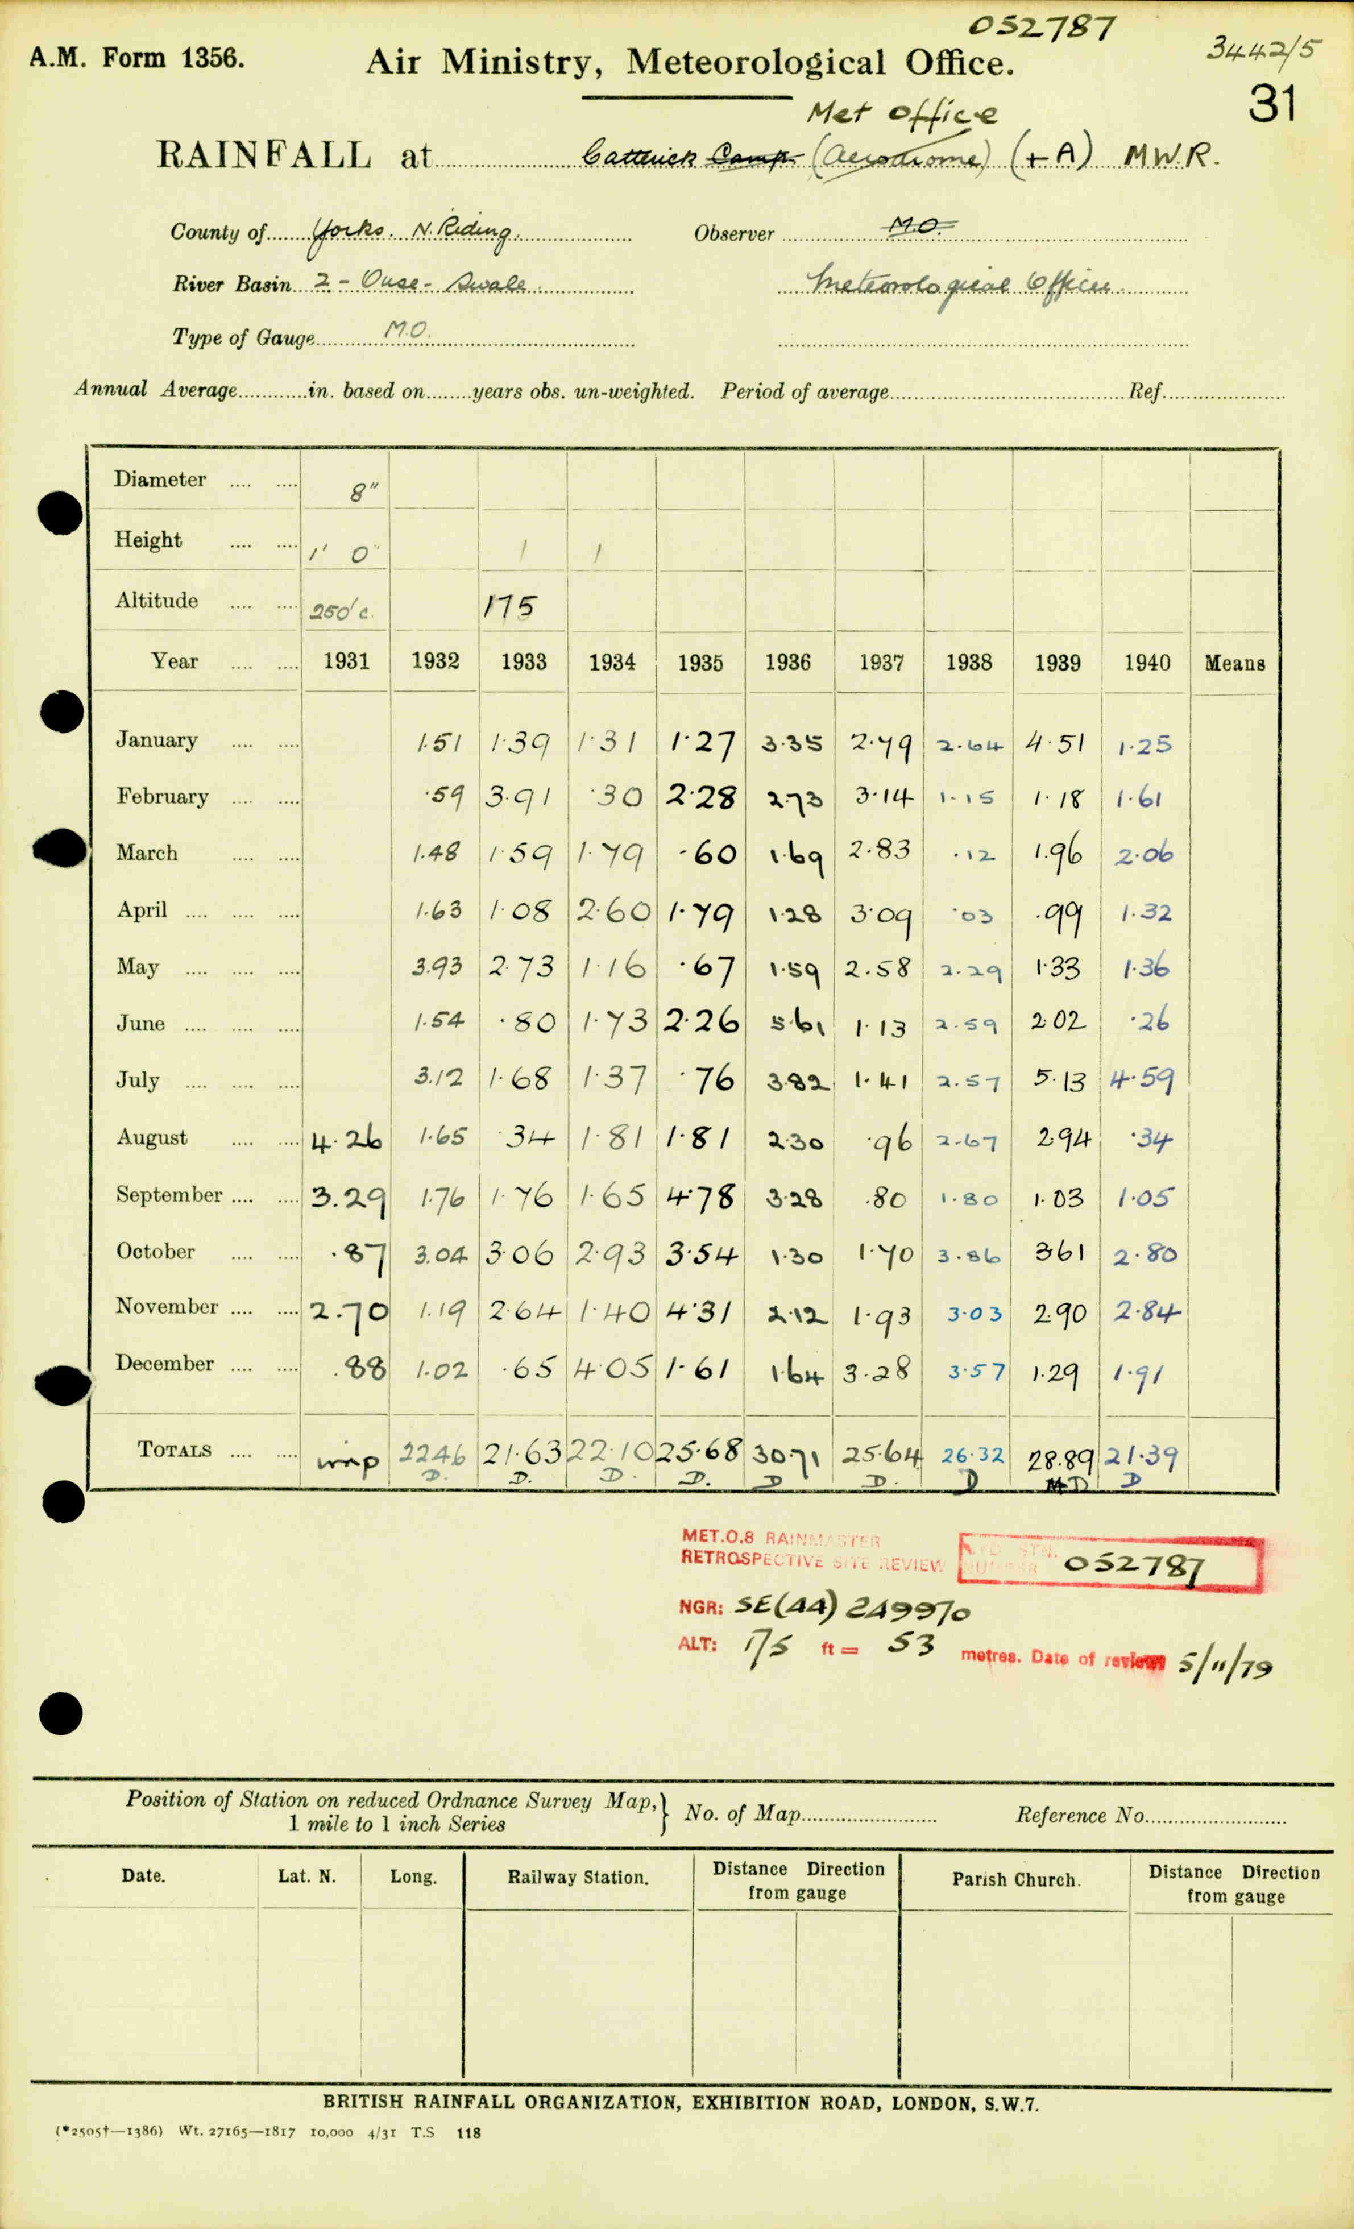 052787
A.M. Form 1356. Air Ministry, Meteorological Office. 3442/5
31
Met Office
RAINFALL at Catterick Camp (Aerodrome) (+A) M.W.R.
County of Yorks. N. Riding. Observer M.O.
River Basin 2 - Ouse - Swale. Meteorological Officer.
Type of Gauge M.O.
Annual Average in. based on years obs. un-weighted. Period of average Ref.
Diameter 8"
Height 1' 0" 1 1
Altitude 250'c. 175
Year 1931 1932 1933 1934 1935 1936 1937 1938 1939 1940 Means
January 1.51 1.39 1.31 1.27 3.35 2.79 2.64 4.51 1.25
February .59 3.91 .30 2.28 2.73 3.14 1.15 1.18 1.61
March 1.48 1.59 1.79 .60 1.69 2.83 .12 1.96 2.06
April 1.63 1.08 2.60 1.79 1.28 3.09 .03 .99 1.32
May 3.93 2.73 1.16 .67 1.59 2.58 2.29 1.33 1.36
June 1.54 .80 1.73 2.26 5.61 1.13 2.59 2.02 .26
July 3.12 1.68 1.37 .76 3.82 1.41 2.57 5.13 4.59
August 4.26 1.65 .34 1.81 1.81 2.30 .96 2.67 2.94 .34
September 3.29 1.76 1.76 1.65 4.78 3.28 .80 1.80 1.03 1.05
October .87 3.04 3.06 2.93 3.54 1.30 1.70 3.86 3.61 2.80
November 2.70 1.19 2.64 1.40 4.31 2.12 1.93 3.03 2.90 2.84
December .88 1.02 .65 4.05 1.61 1.64 3.28 3.57 1.29 1.91
TOTALS imp 22.46 21.63 22.10 25.68 30.71 25.64 26.32 28.89 21.39
D. D. D. D. D D. D D D
MET.O.8 RAINMASTER
RETROSPECTIVE SITE REVIEW STN. NUMBER 052787
NGR: SE(44) 249970
ALT: 175 ft = 53 metres. Date of review 5/11/79
Position of Station on reduced Ordnance Survey Map,} No. of Map Reference No.
1 mile to 1 inch Series
Date. Lat. N. Long. Railway Station. Distance Direction from gauge Parish Church. Distance Direction from gauge
BRITISH RAINFALL ORGANIZATION, EXHIBITION ROAD, LONDON, S.W.7.
(*2505†—1386) Wt. 27165—1817 10,000 4/31 T.S 118